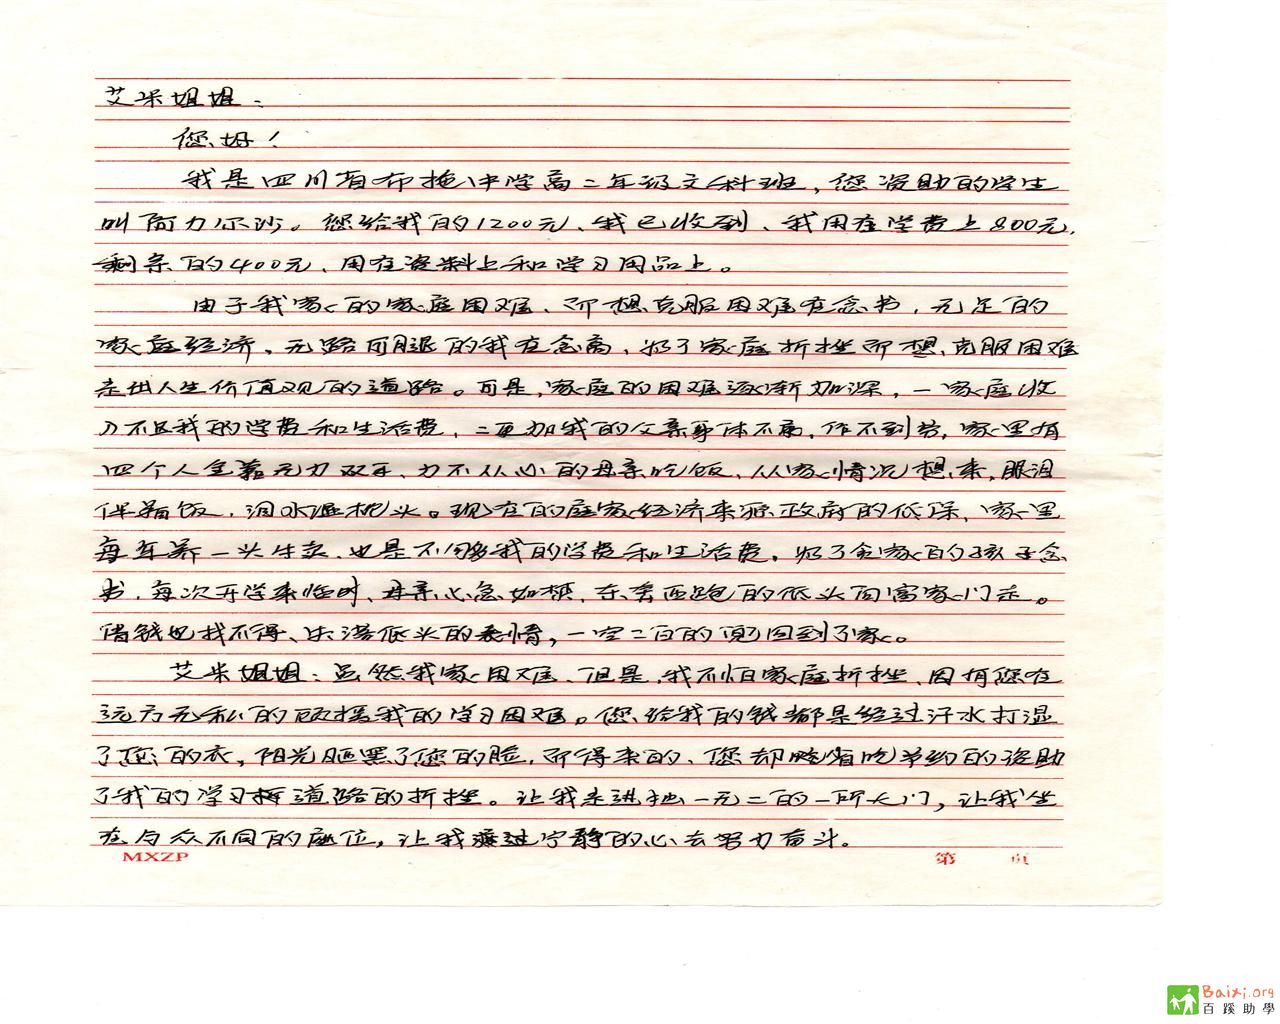 艾米姐姐：
您好！
我是四川省布拖中学高二年级文科班，您资助的学生
叫阿力尔沙。您给我的1200元、我已收到、我用在学费上800元，
剩余的400元、用在资料上和学习用品上。
由于我家的家庭困难、所想克服困难在念书，无足的
家庭经济，无路可退的我在念高，为了家庭折挫所想克服困难
走出人生价值观的道路。可是，家庭的困难逐渐加深，一家庭收
入不足我的学费和生活费，二更加我的父亲身体不高，作不到劳，家里有
四个人全靠无力双手、力不从心的母亲吃饭、从家情况想来，眼泪
伴着饭，泪水湿枕头。现在的庭家经济来源政府的低保、家里
每年养一头牛卖、也是不够我的学费和生活费，为了全家的孩子念
书，每次开学来临时、母亲心急如焚，东奔西跑的低头向富家门走。
借钱也找不得、失落低头的表情，一空二白的面回到了家。
艾米姐姐：虽然我家困难、但是，我不怕家庭折挫、因有您在
远方无私的支援我的学习困难。您给我的钱都是经过汗水打湿
了您的衣，阳光晒黑了您的脸，所得来的、您却省吃节约的资助
了我的学习道路的折挫。让我走进独一无二的一所大门，让我坐
在与众不同的座位，让我通过宁静的心去努力奋斗。
MXZP 第 页
Baixi.org
百蹊助學